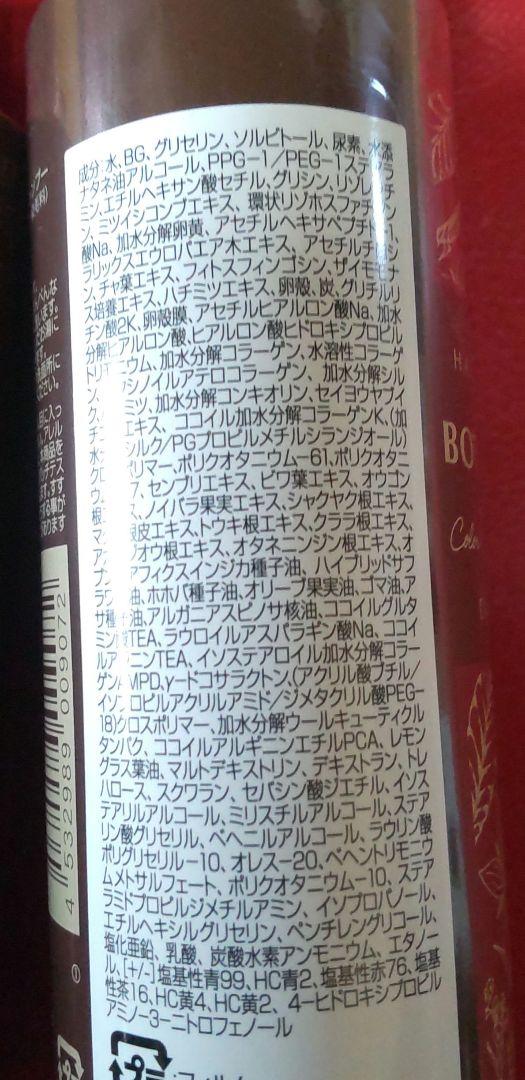 成分:水、BG、グリセリン、ソルビトール、尿素、水添
ナタネ油アルコール、PPG-1/PEG-1ステアラ
ミン、エチルヘキサン酸セチル、グリシン、リゾレシチ
ン、ミツイシコンブエキス、環状リゾホスファチジン
酸Na、加水分解卵黄、アセチルヘキサペプチド
ラリックスエウロパエア木エキス、アセチル
ン、チャ葉エキス、フィトスフィンゴシン、サイモモナ
ス培養エキス、ハチミツエキス、卵殻、炭、グリチルリ
チン酸2K、卵殻膜、アセチルヒアルロン酸Na、加水
分解ヒアルロン酸、ヒアルロン酸ヒドロキシプロピル
トリモニウム、加水分解コラーゲン、水溶性コラーゲ
ン、サクシノイルアテロコラーゲン、加水分解シル
ク、ハチミツ、加水分解コンキオリン、セイヨウヤブイ
チゴエキス、ココイル加水分解コラーゲンK、(加
水分解シルク/PGプロピルメチルシランジオール)
クロスポリマー、ポリクオタニウム-61、ポリクオタニ
ウム-7、センブリエキス、ビワ葉エキス、オウゴン
根エキス、ノイバラ果実エキス、シャクヤク根エキス、
根皮エキス、トウキ根エキス、クララ根エキス、
オウ根エキス、オタネニンジン根エキス、オ
プンチアフィクスインジカ種子油、ハイブリッドサフ
ラワー油、ホホバ種子油、オリーブ果実油、ゴマ油、ア
サ種子油、アルガニアスピノサ核油、ココイルグルタ
ミン酸TEA、ラウロイルアスパラギン酸Na、ココイ
ルアラニンTEA、イソステアロイル加水分解コラー
ゲンAMPD、γ-ドコサラクトン、(アクリル酸ブチル/
イソプロピルアクリルアミド/ジメタクリル酸PEG-
18)クロスポリマー、加水分解ウールキューティクル
タンパク、ココイルアルギニンエチルPCA、レモン
グラス葉油、マルトデキストリン、デキストラン、トレ
ハロース、スクワラン、セバシン酸ジエチル、イソス
テアリルアルコール、ミリスチルアルコール、ステア
リン酸グリセリル、ベヘニルアルコール、ラウリン酸
ポリグリセリル-10、オレス-20、ベヘントリモニウ
ムメトサルフェート、ポリクオタニウム-10、ステア
ラミドプロピルジメチルアミン、イソプロパノール、
エチルヘキシルグリセリン、ペンチレングリコール、
塩化亜鉛、乳酸、炭酸水素アンモニウム、エタノー
ル、[+/-]塩基性青99、HC青2、塩基性赤76、塩基
性茶16、HC黄4、HC黄2、4-ヒドロキシプロピル
アミノ-3-ニトロフェノール
4 532989 009072
プラ
BO